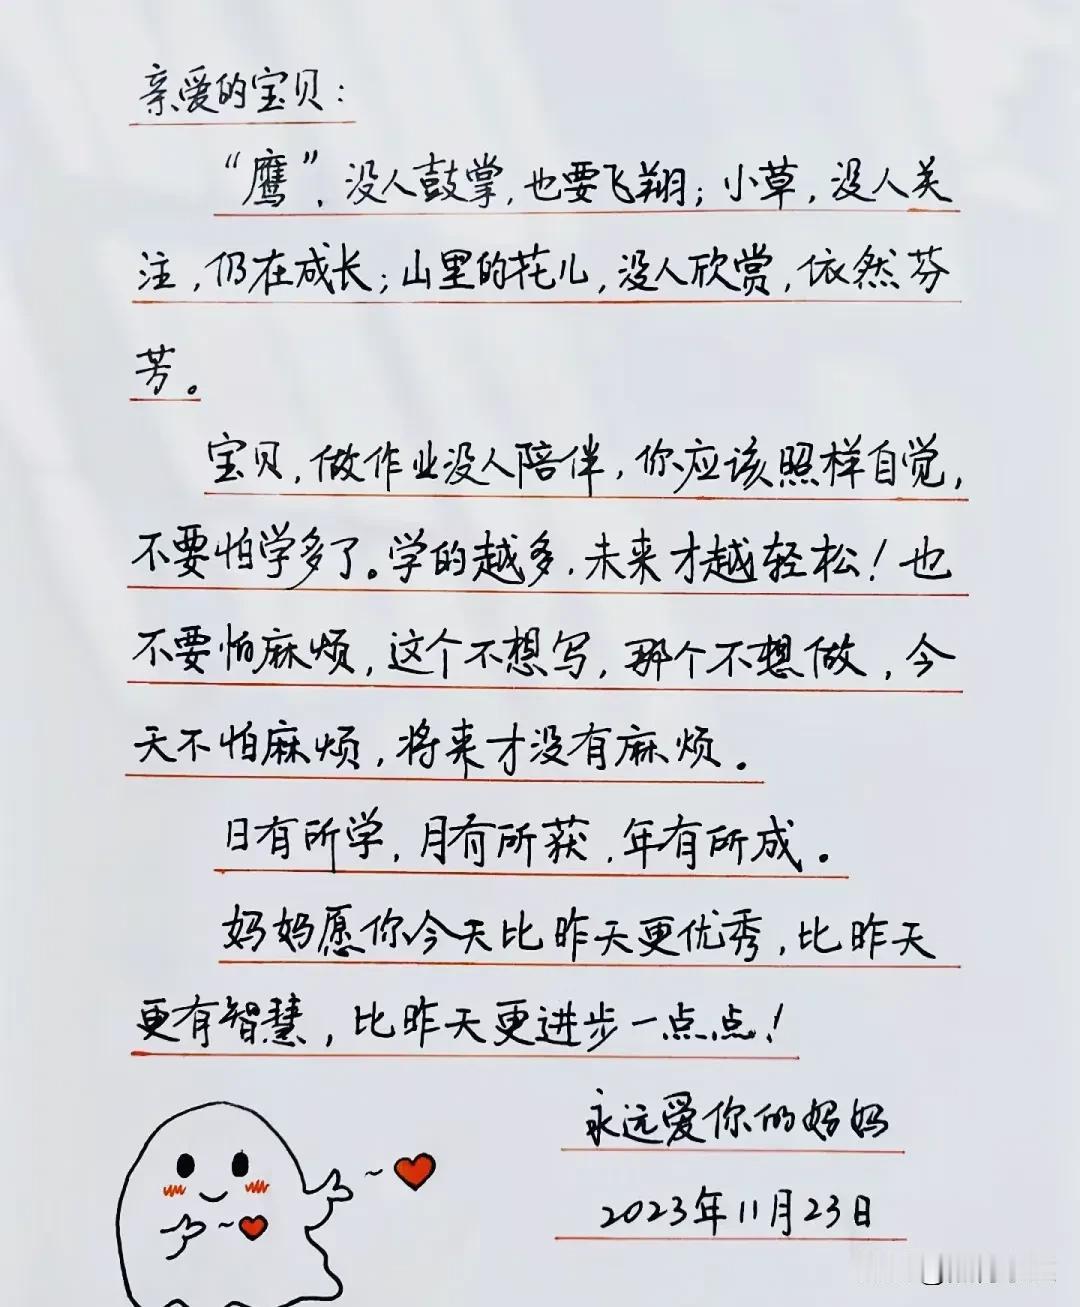 亲爱的宝贝：
“鹰”，没人鼓掌，也要飞翔；小草，没人关
注，仍在成长；山里的花儿，没人欣赏，依然芬
芳。
宝贝，做作业没人陪伴，你应该照样自觉，
不要怕学多了。学的越多，未来才越轻松！也
不要怕麻烦，这个不想写，那个不想做，今
天不怕麻烦，将来才没有麻烦。
日有所学，月有所获，年有所成。
妈妈愿你今天比昨天更优秀，比昨天
更有智慧，比昨天更进步一点点！
永远爱你的妈妈
2023年11月23日